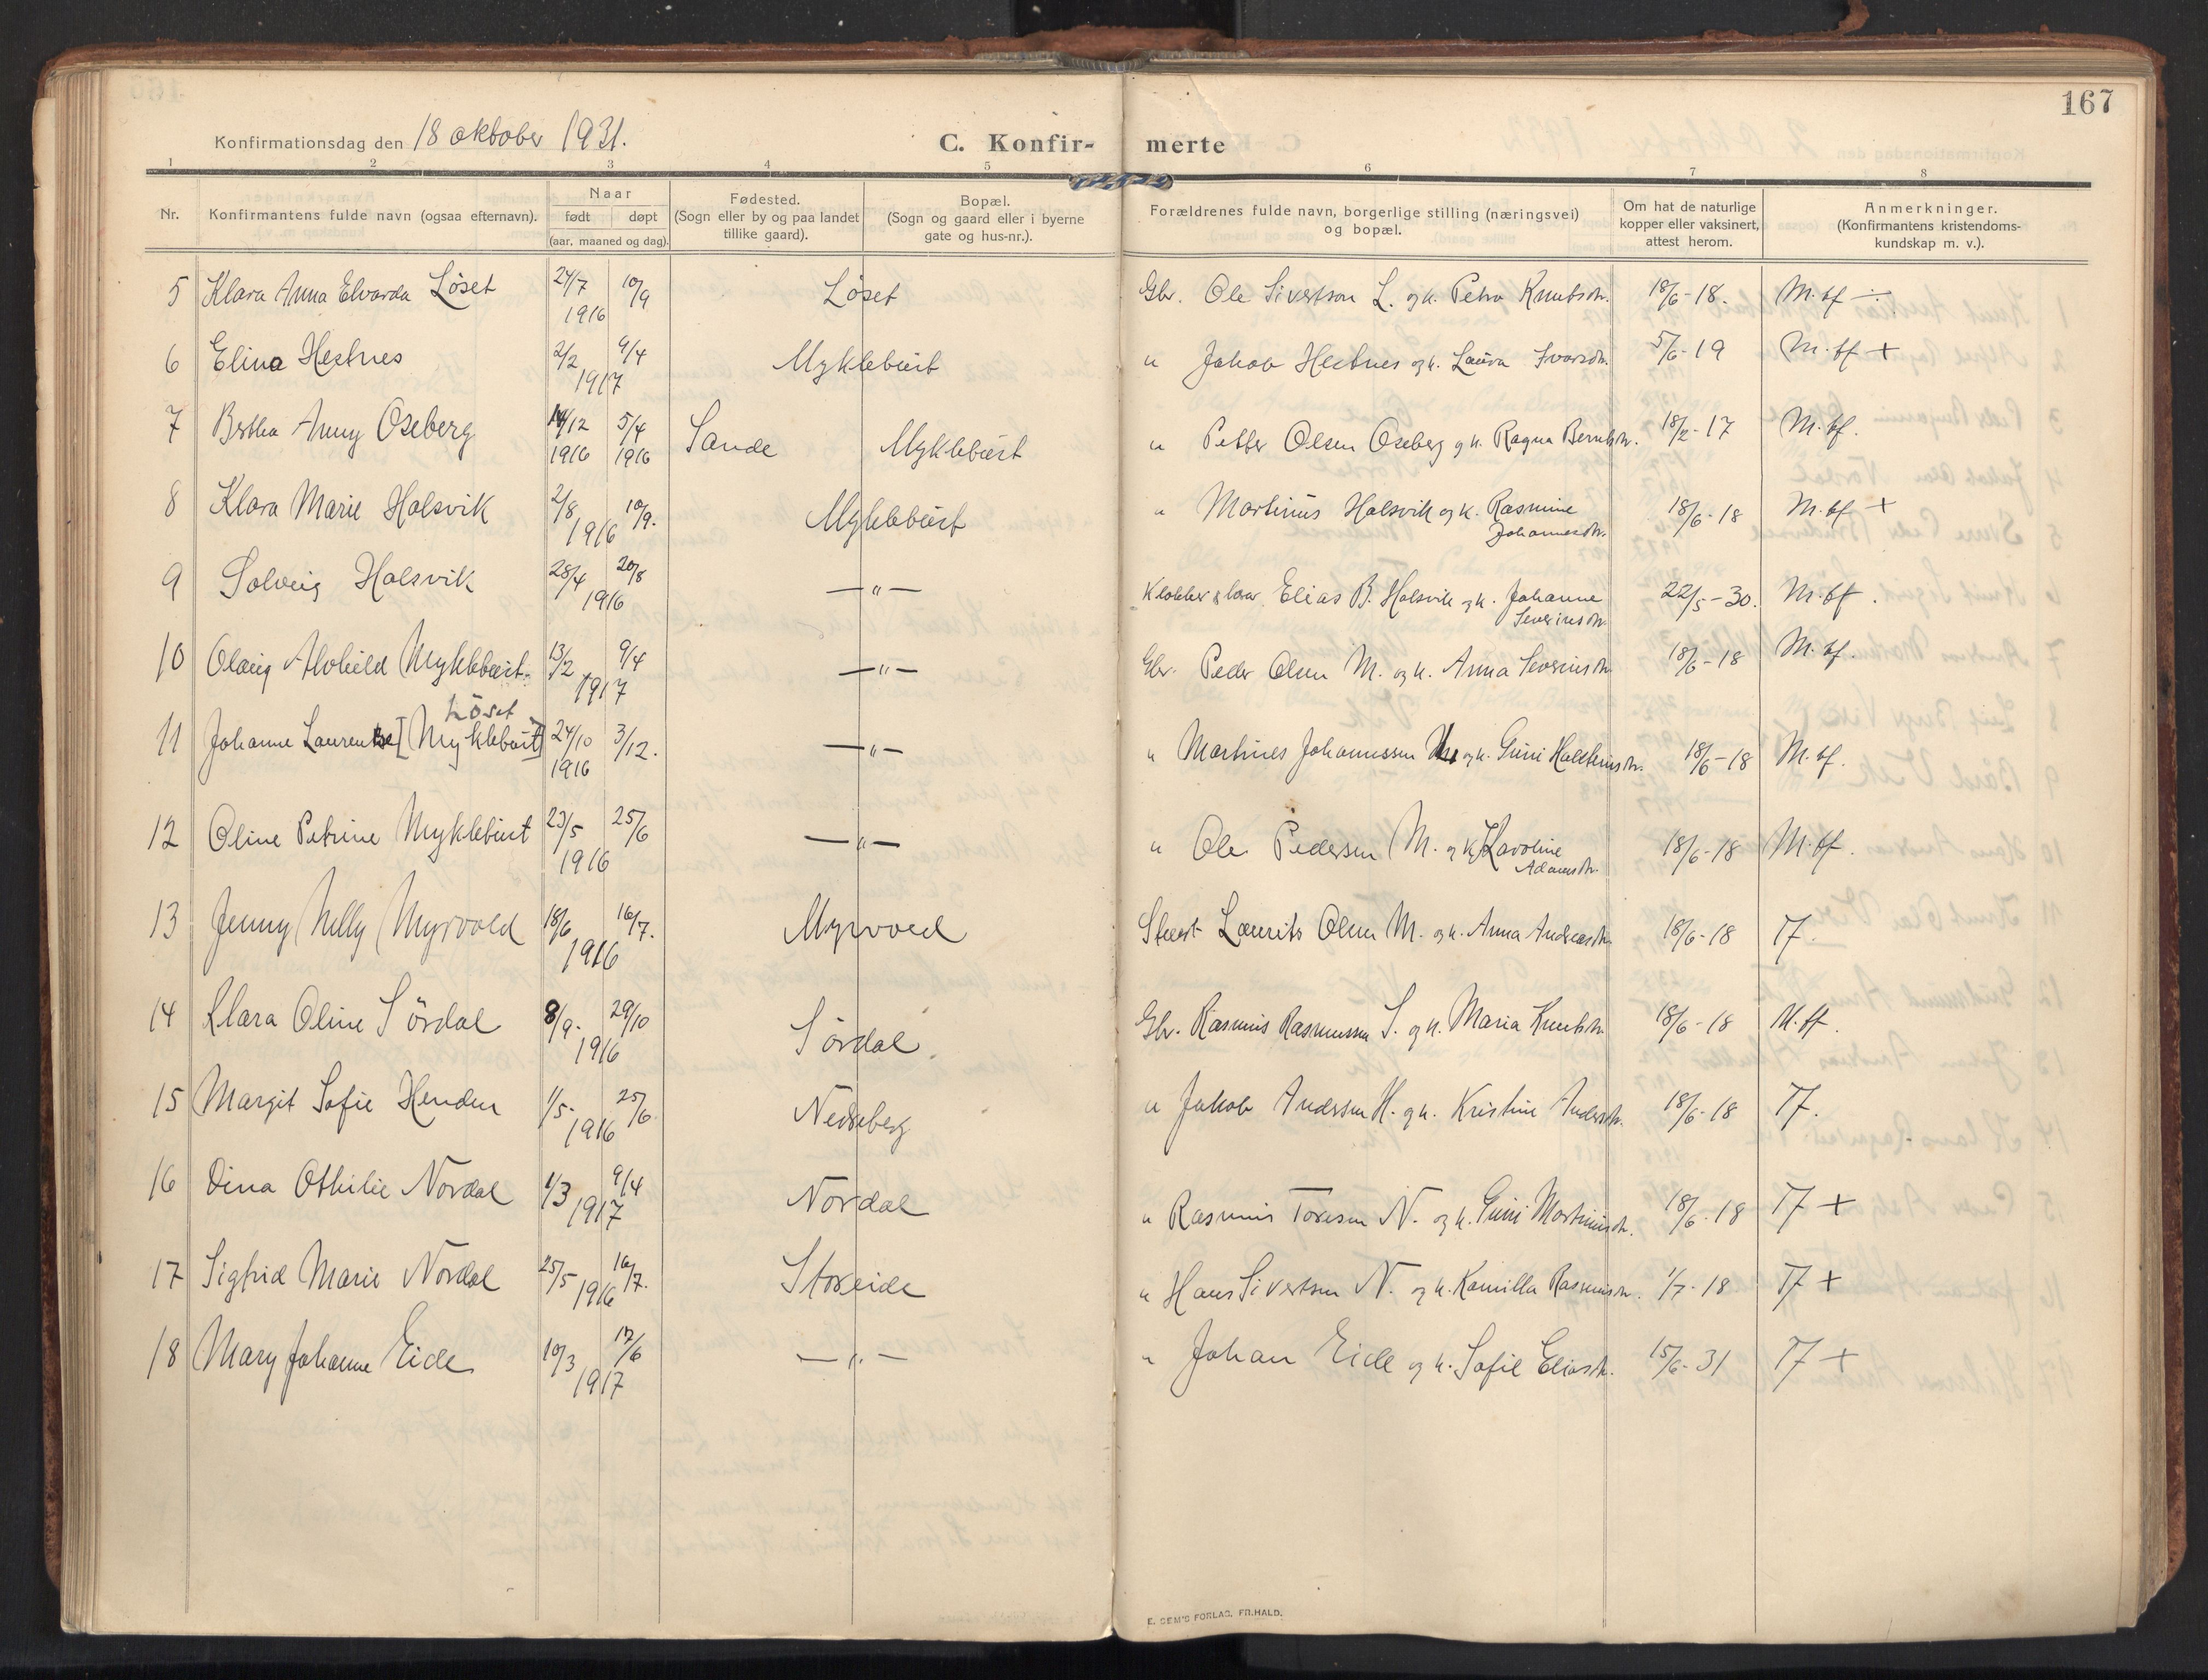 167
Konfirmationsdag den 18 oktober 1931.
C. Konfir- merte
1 2 3 4 5 6 7 8
Nr.
Konfirmantens fulde navn (ogsaa efternavn).
Naar
født døpt
(aar, maaned og dag).
Fødested.
(Sogn eller by og paa landet
tillike gaard).
Bopæl.
(Sogn og gaard eller i byerne
gate og hus-nr.).
Forældrenes fulde navn, borgerlige stilling (næringsvei)
og bopæl.
Om hat de naturlige
kopper eller vaksinert,
attest herom.
Anmerkninger.
(Konfirmantens kristendoms-
kundskap m. v.).
5 Klara Anna Elvarda Løset 24/7 10/9 1916 Løset Gbr. Ole Sivertson L. og k. Petra Knutsdtr. 18/6-18. M.tf ÷
6 Elina Hestnes 2/2 9/4 1917 Myklebust " Jakob Hestnes og k. Laura Ivarsdtr. 5/6-19 M.tf +
7 Bertha Anny Oseberg 14/12 1916 5/4 1916 Sande Myklebust " Petter Olsen Oseberg og k. Ragna Berntsdtr. 18/2-17 M.tf.
8 Klara Marie Halsvik 2/8 10/9. 1916 Myklebust " Martinus Halsvik og k. Rasmine
Johannesdtr. 18/6-18 M.tf +
9 Solveig Halsvik 28/4 20/8 1916 —"— Klokker & lærer Elias B. Halsvik og k. Johanne
Severinsdtr. 22/5-30. M.tf.
10 Olaug Alvhild Myklebust. 13/2 9/4 1917 —"— Gbr. Peder Olsen M. og k. Anna Severinsdtr. 18/6-18 M.tf.
Löset
11 Johanne Laurentse [Myklebust] 24/10 1916 3/12. —"— " Martines Johannessen M. og k. Guri Halstensdtr. 18/6-18 M.tf.
12 Oline Petrine Myklebust 23/5 25/6 1916 —"— " Ole Pedersen M. og k. Karoline
Adamsdtr. 18/6-18 M.tf.
13 Jenny Nelly Myrvold 18/6 16/7. 1916 Myrvold Laurits Olsen M. og k. Anna Andreasdtr. 18/6-18 Tf.
14 Klara Oline Sördal 8/9. 29/10 1916 Sördal. Gbr. Rasmus Rasmussen S. og k. Maria Knutsdtr. 18/6-18 M.tf.
15 Margit Sofie Henden 1/5. 25/6 1916 Nedreberg " Jakob Andersen H. og k. Kristine Andersdtr. 18/6-18 Tf.
16 Dina Othilie Nordal 1/3 9/4 1917 Nordal " Rasmus Toresen N. og k. Guri Martinusdtr. 18/6-18 Tf +
17 Sigfrid Marie Nordal 25/5 16/7. 1916 Storeide " Hans Sivertsen N. og k. Kamilla Rasmusdtr. 1/7-18 Tf +
18 Mary Johanne Eide 10/3 17/6 1917 —"— " Johan Eide og k. Sofie Eliasdtr. 15/6-31 Tf +
E. SEM'S FORLAG, FR.HALD.